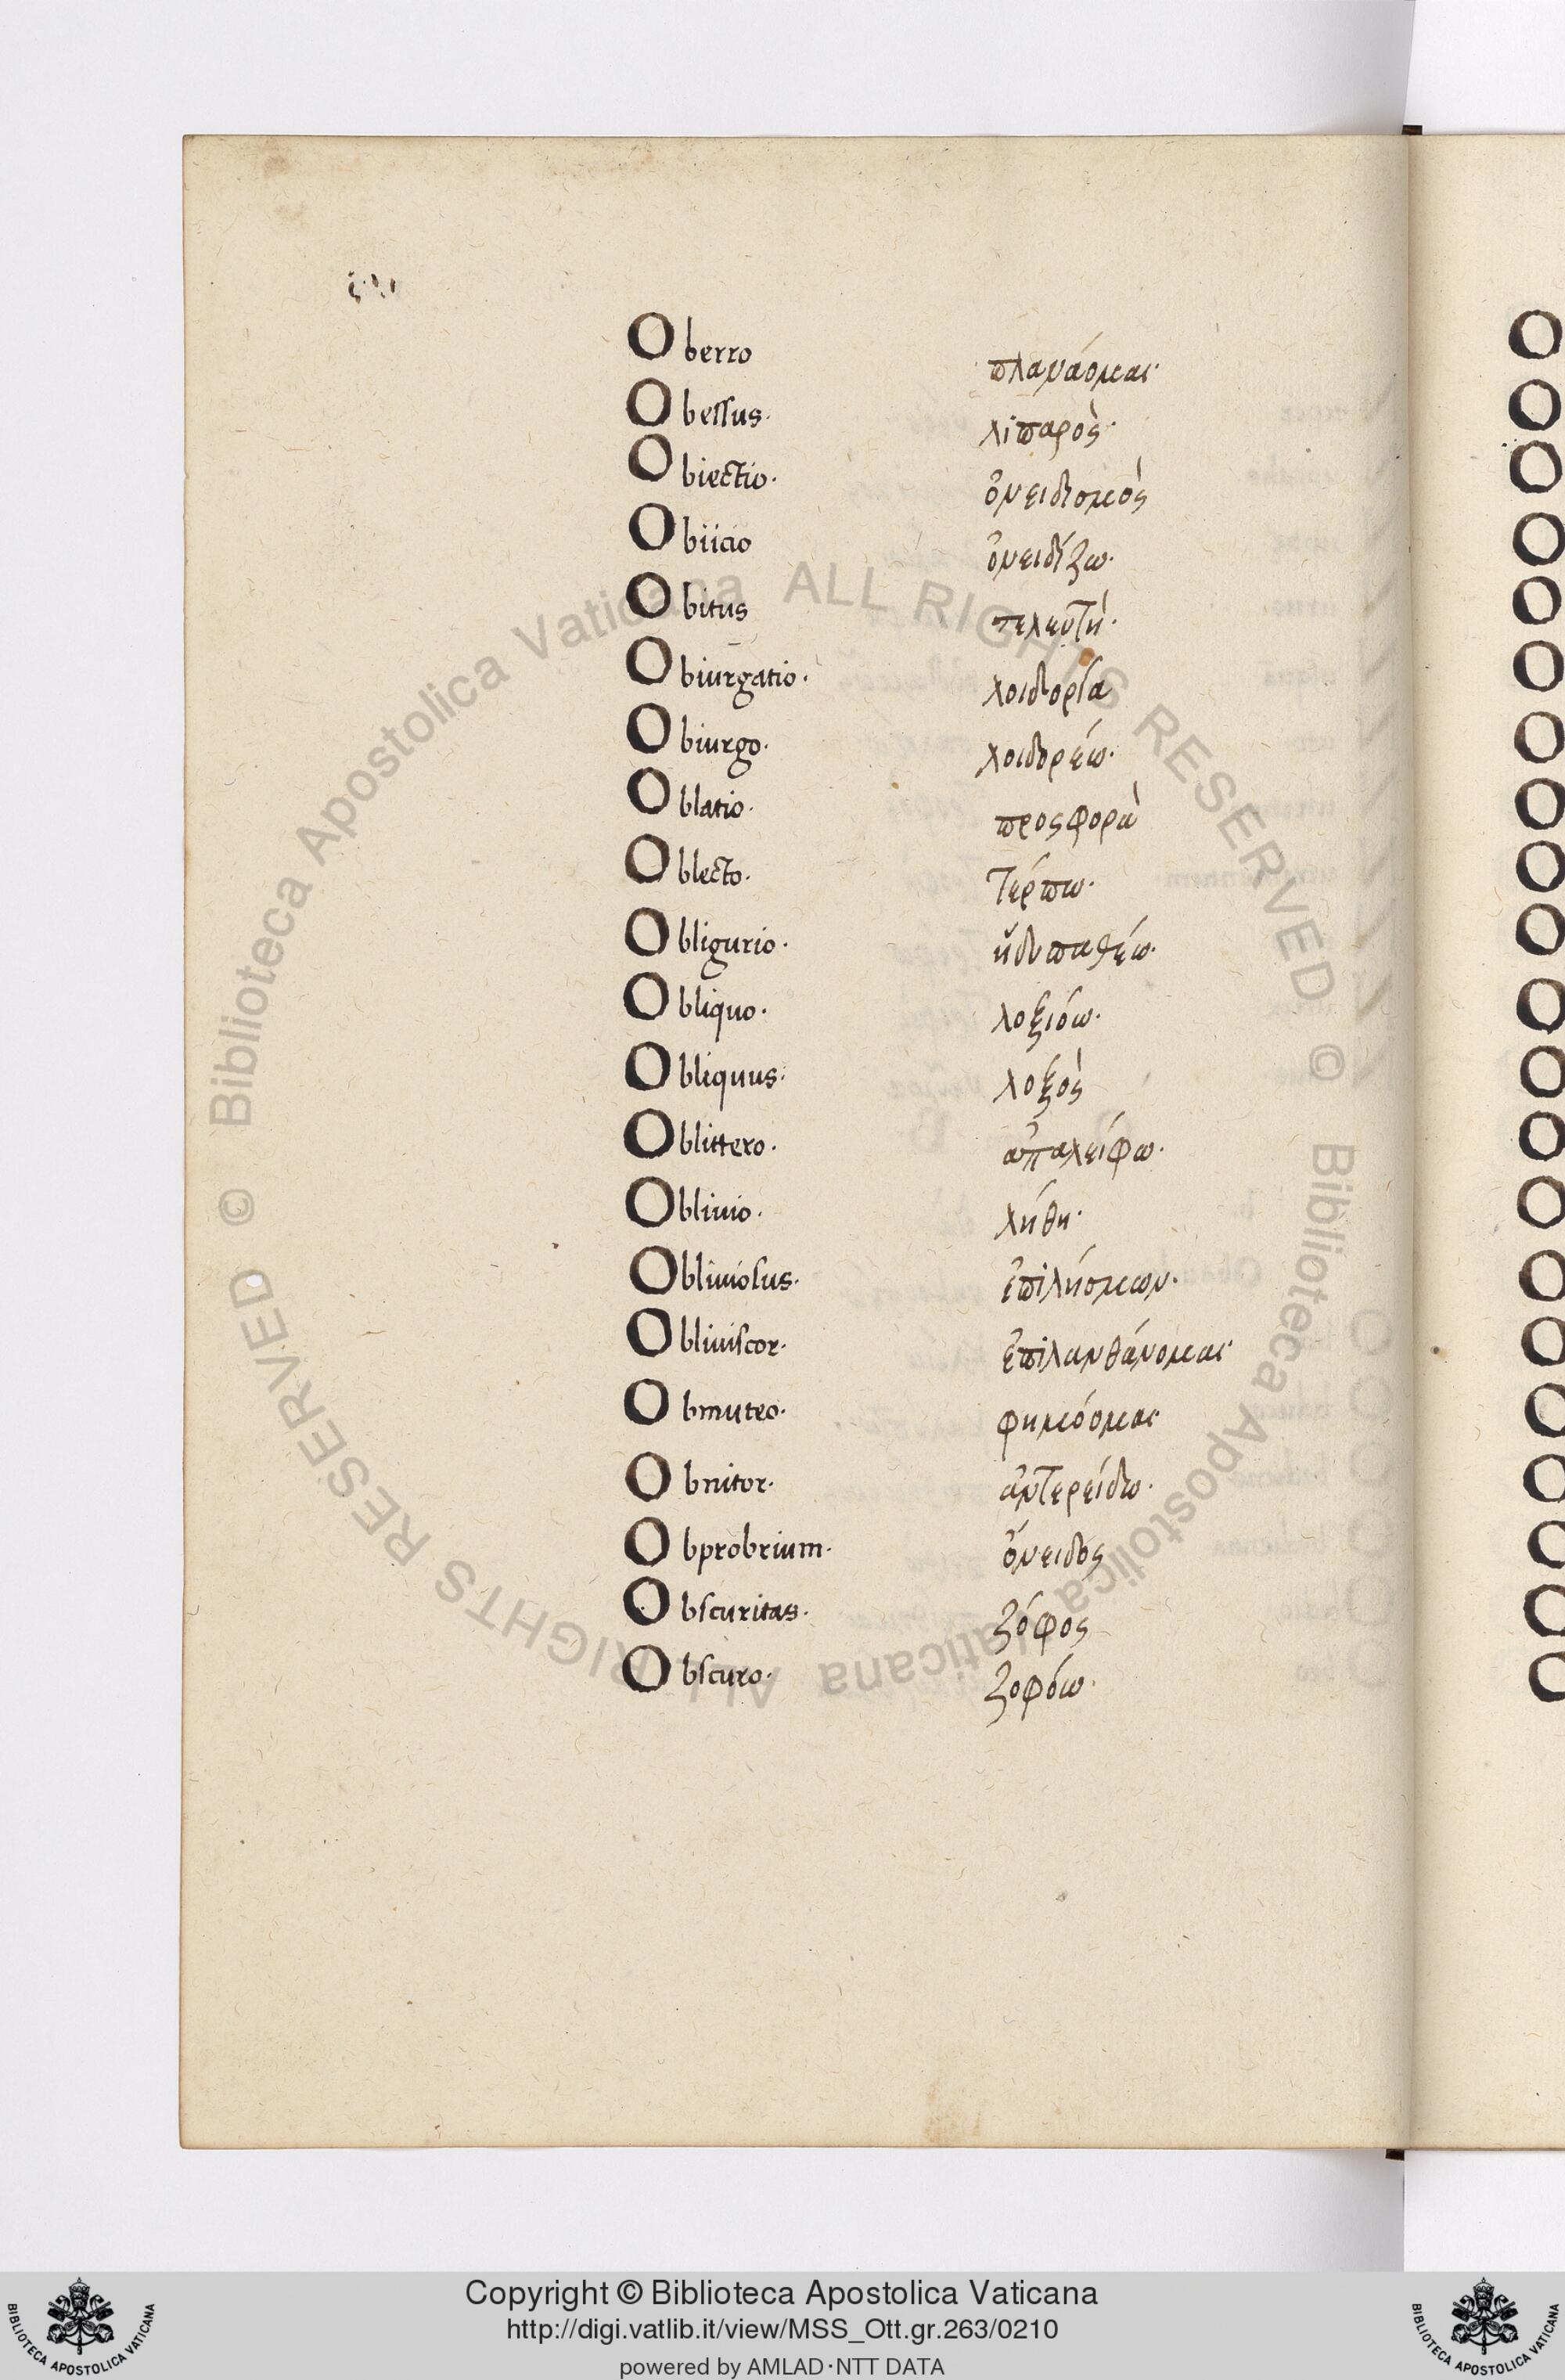 Oberro πλανάομαι
Obessus· λιπαρὸς·
Obiectio· ὀνειδισμὸς
Obiicio ὀνειδίζω·
Obitus τελευτὴ·
Obiurgatio· λοιδορία
Obiurgo· λοιδορέω·
Oblatio· προσφορὰ
Oblecto· τέρπω·
Obligurio· ἡδυπαθέω·
Obliquo· λοξιόω·
Obliquus· λοξὸς
Oblittero· ἀπαλείφω·
Obliuio· λήθη·
Obliuiosus· ἐπιλήσμων·
Obliuiscor· ἐπιλανθάνομαι
Obmuteo· φημόομαι
Obnitor· ἀντερείδω·
Obprobrium· ὄνειδος
Obscuritas· ζόφος
Obscuro· ζοφόω·
© Biblioteca Apostolica Vaticana ALL RIGHTS RESERVED © Biblioteca Apostolica Vaticana ALL RIGHTS RESERVED
Copyright © Biblioteca Apostolica Vaticana
http://digi.vatlib.it/view/MSS_Ott.gr.263/0210
powered by AMLAD·NTT DATA
BIBLIOTECA APOSTOLICA VATICANA
BIBLIOTECA APOSTOLICA VATICANA